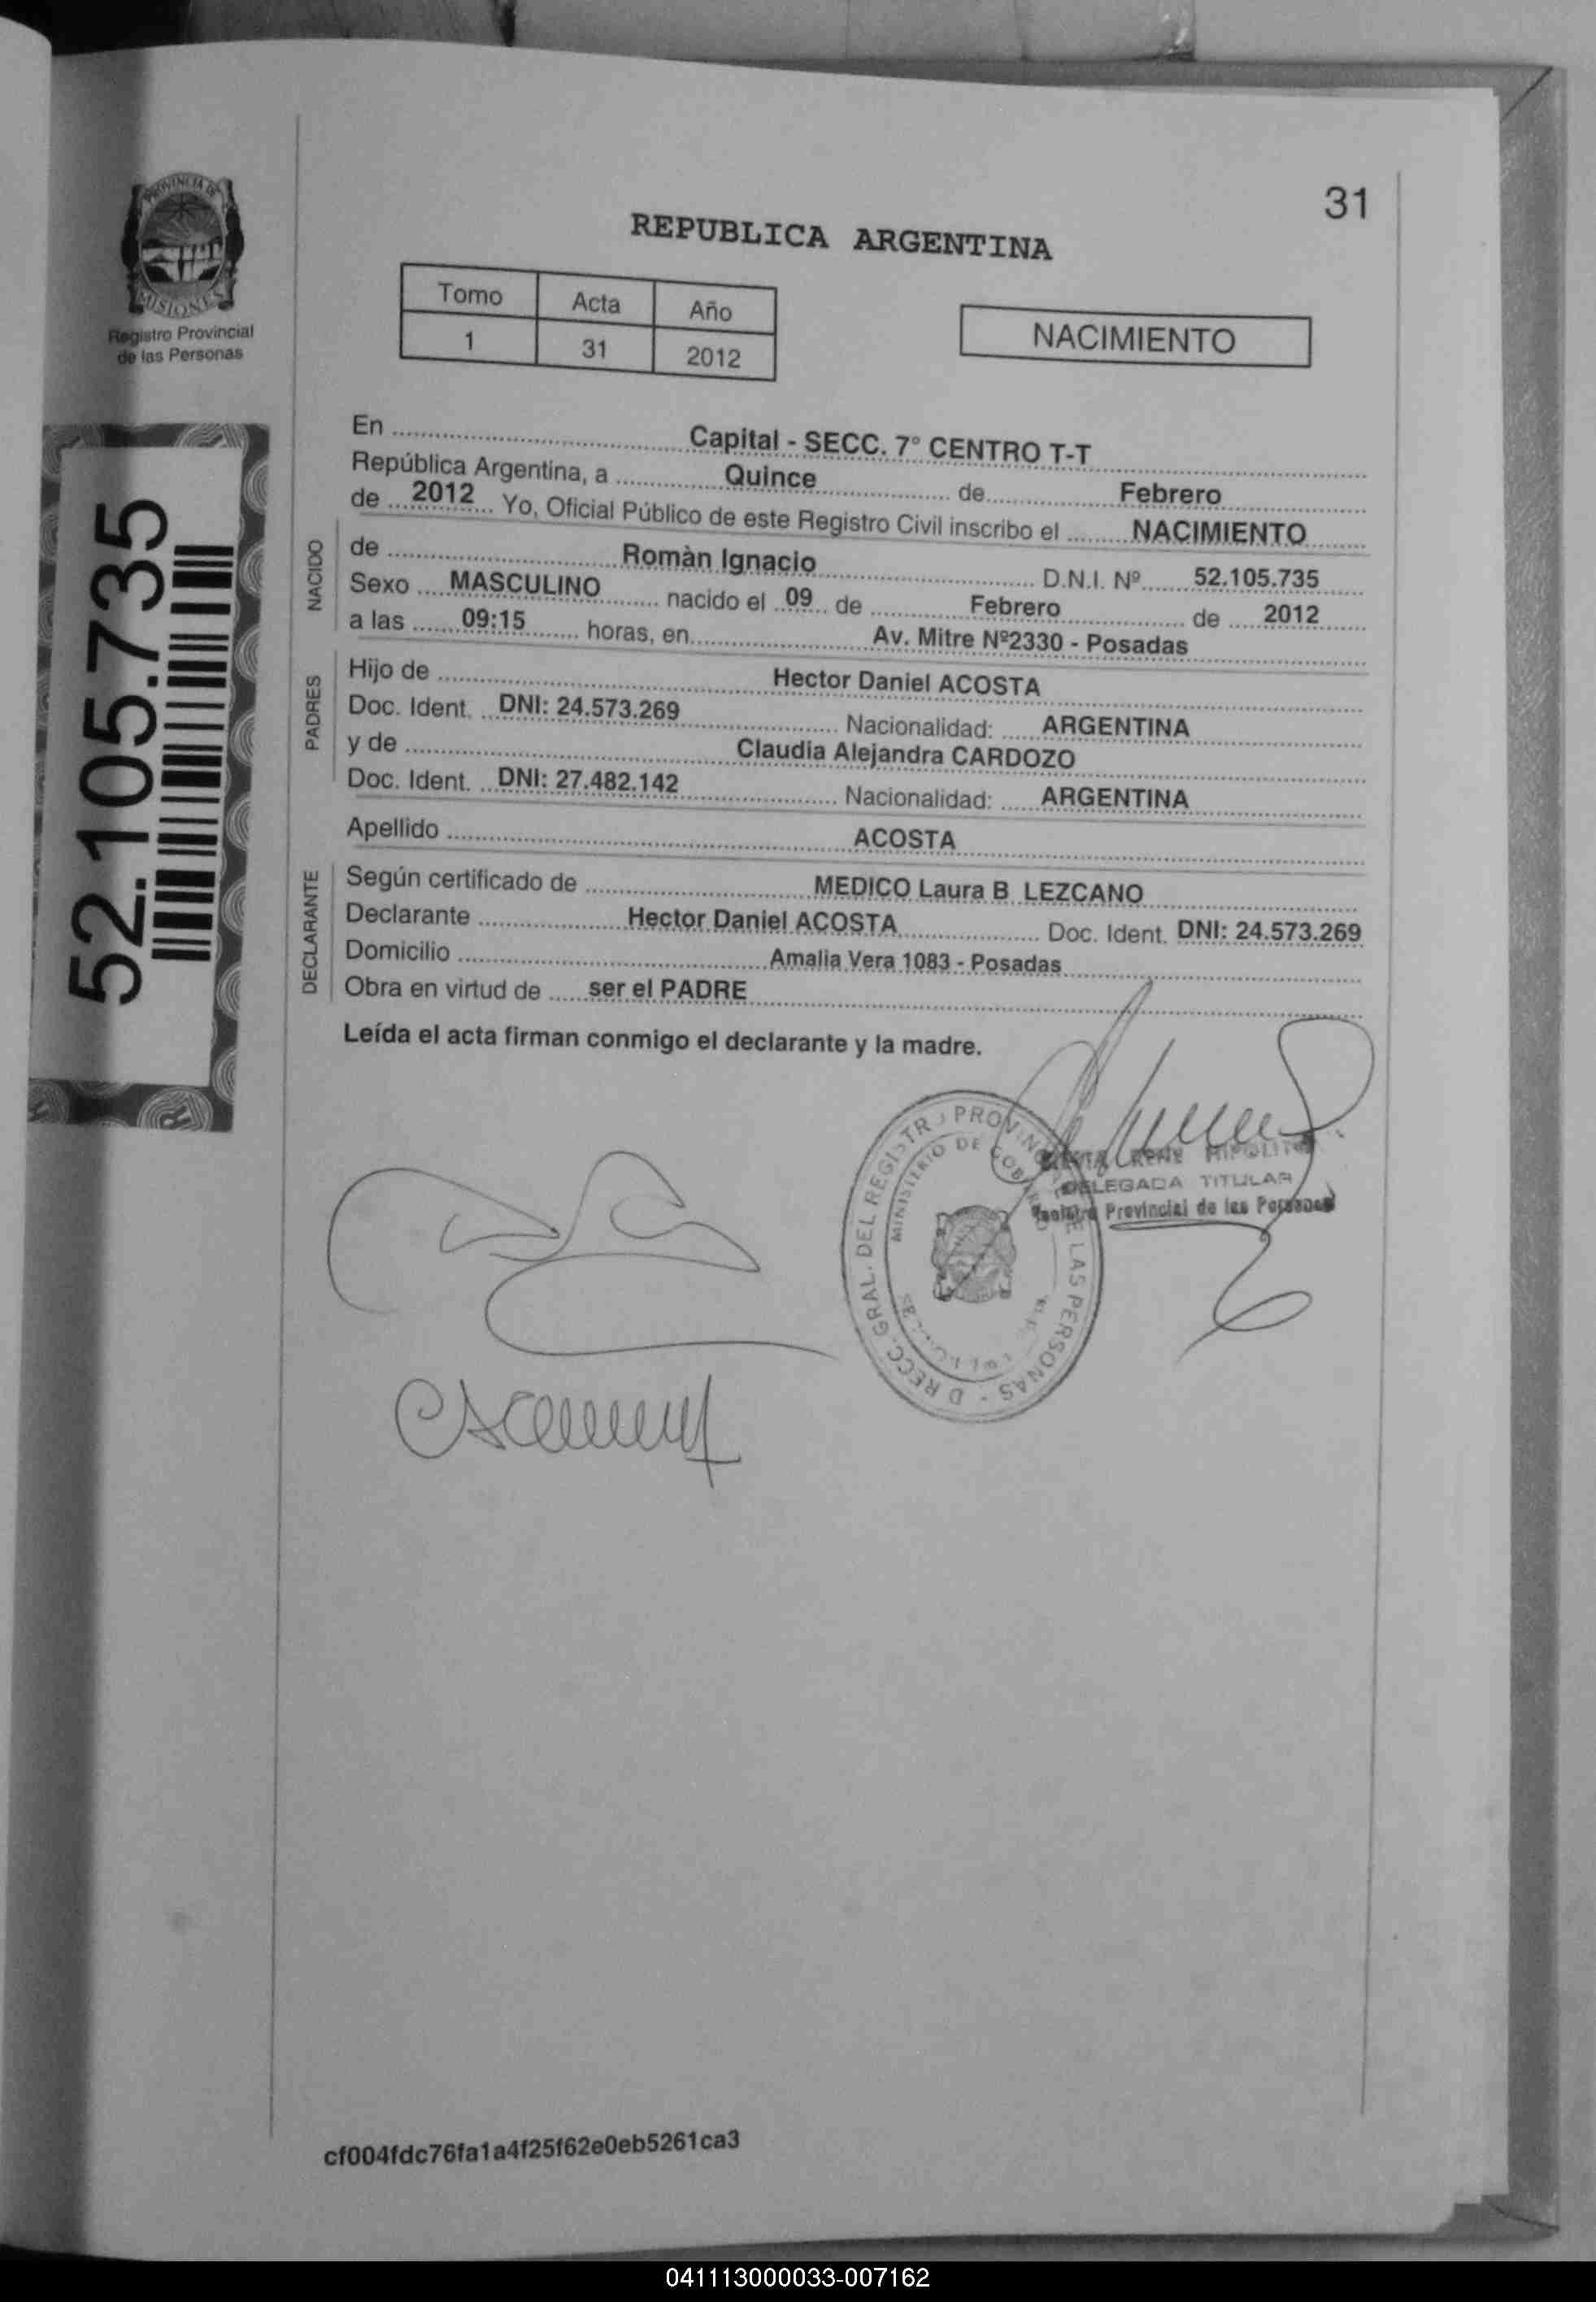 31
PROVINCIA DE
MISIONES
Registro Provincial
de las Personas
REPUBLICA ARGENTINA
Tomo Acta Año
1 31 2012
NACIMIENTO
52.105.735
En Capital - SECC. 7° CENTRO T-T
República Argentina, a Quince de Febrero
de 2012 Yo, Oficial Público de este Registro Civil inscribo el NACIMIENTO
NACIDO
de Romàn Ignacio D.N.I. Nº 52.105.735
Sexo MASCULINO nacido el 09 de Febrero de 2012
a las 09:15 horas, en Av. Mitre Nº2330 - Posadas
PADRES
Hijo de Hector Daniel ACOSTA
Doc. Ident. DNI: 24.573.269 Nacionalidad: ARGENTINA
y de Claudia Alejandra CARDOZO
Doc. Ident. DNI: 27.482.142 Nacionalidad: ARGENTINA
Apellido ACOSTA
DECLARANTE
Según certificado de MEDICO Laura B LEZCANO
Declarante Hector Daniel ACOSTA Doc. Ident. DNI: 24.573.269
Domicilio Amalia Vera 1083 - Posadas
Obra en virtud de ser el PADRE
Leída el acta firman conmigo el declarante y la madre.
RENE HIPOLITO
DELEGADA TITULAR
Registro Provincial de las Personas
D RECC. GRAL. DEL REGISTRO PROVINCIAL DE LAS PERSONAS -
MINISTERIO DE GOBIERNO
cf004fdc76fa1a4f25f62e0eb5261ca3
041113000033-007162